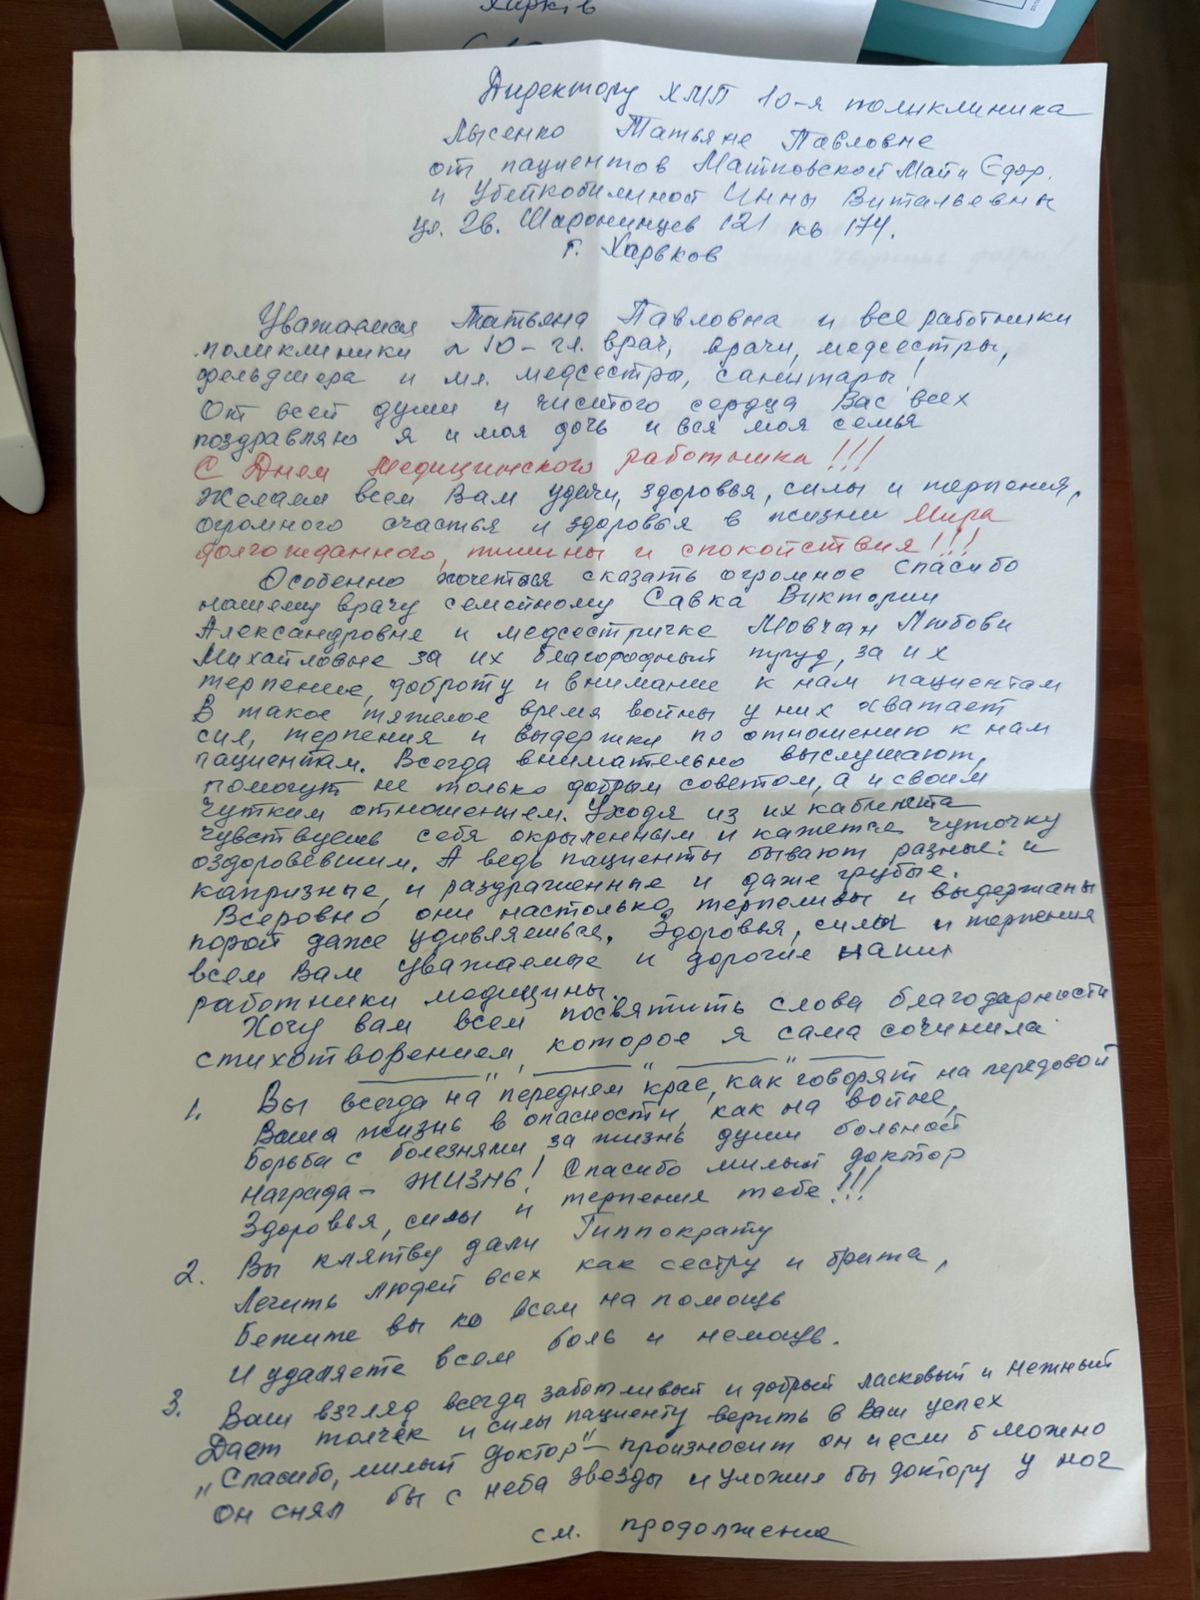 Харків
Директору ХМП 10-я поликлиника
Лысенко Татьяне Павловне
от пациентов Матковской Майи Єдор.
и Инны Витальевны
ул. Гв. Широнинцев 121 кв 174.
г. Харьков
Уважаемая Татьяна Павловна и все работники
поликлиники 10 - гл. врач, врачи, медсестры,
фельдшера и мл. медсестры, санитары!
От всей души и чистого сердца Вас всех
поздравляю я и моя дочь и вся моя семья
С Днем Медицинского работника!!!
Желаем всем Вам удачи, здоровья, силы и терпения,
огромного счастья и здоровья в жизни Мира
долгожданного, тишины и спокойствия!!!
Особенно хочеться сказать огромное спасибо
нашему врачу семейному Савка Виктории
Александровне и медсестричке Мовчан Любови
Михайловне за их благородный труд, за их
терпение, доброту и внимание к нам пациентам
В такое тяжелое время войны у них хватает
сил, терпения и выдержки по отношению к нам
пациентам. Всегда внимательно выслушают,
помогут не только добрым советом, а и своим
чутким отношением. Уходя из их кабинета
чувствуешь себя окрыленным и кажется чуточку
оздоровевшим. А ведь пациенты бывают разные: и
капризные, и раздраженные и даже грубые.
Всеровно они настолько терпеливы и выдержаны
порой даже удивляешься. Здоровья, силы и терпения
всем Вам уважаемые и дорогие наши
работники медицины.
Хочу вам всем посвятить слова благодарности
стихотворением, которое я сама сочинила
1. Вы всегда на "переднем крае, как" говорят на передовой
Ваша жизнь в опасности, как на войне,
Борьба с болезнями за жизнь души больной
Награда - ЖИЗНЬ! Спасибо милый доктор
Здоровья, силы и терпения тебе!!!
2. Вы клятву дали Гиппократу
Лечить людей всех как сестру и брата,
Бежите вы ко всем на помощь
И удаляете всем боль и немощь.
3. Ваш взгляд всегда заботливый и добрый ласковый и нежный
Дает толчек и силы пациенту верить в Ваш успех
„Спасибо, милый доктор" - произносит он и если б можно
Он снял бы с неба звезды и уложил бы доктору у ног
см. продолжение